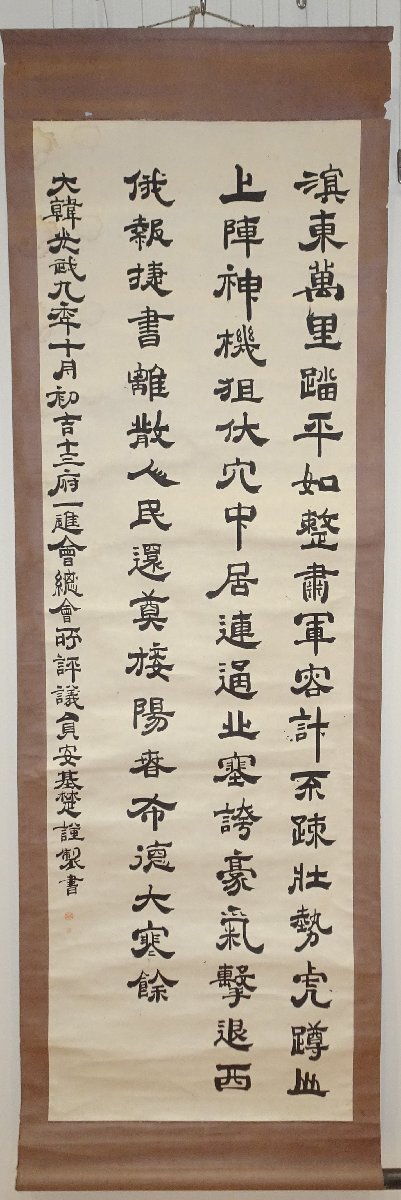 滇東萬里踏平如整肅軍容計不疎壯勢虎蹲山
上陣神機狙伏穴中居連逼北塞誇豪氣擊退西
俄報捷書離散人民還奠接陽春布德大寒餘
大韓光武九年十月初吉十三府一進會總會所評議員安基楚謹製書